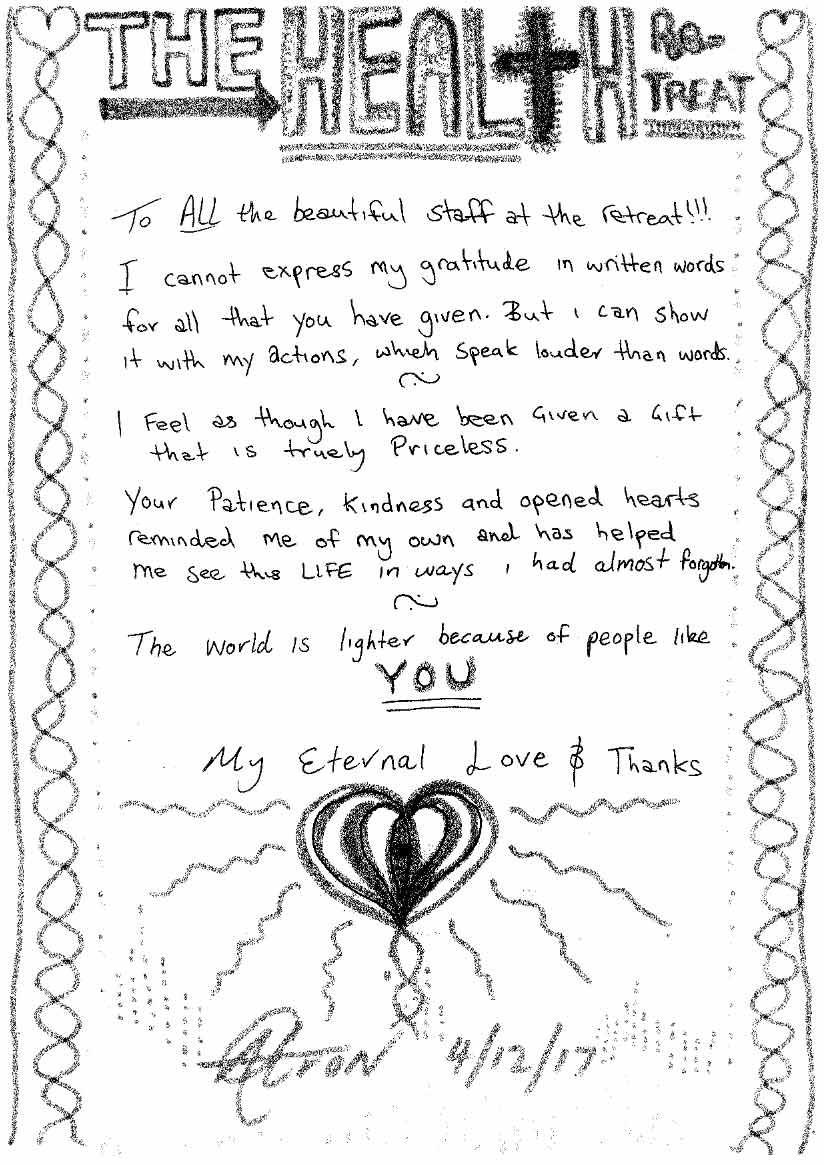 THE HEALTH Re-
TREAT
To ALL the beautiful staff at the retreat!!!
I cannot express my gratitude in written words
for all that you have given. But i can show
it with my actions, which speak louder than words.
~
I Feel as though I have been Given a Gift
that is truely Priceless.
Your Patience, kindness and opened hearts
reminded me of my own and has helped
me see this LIFE in ways i had almost forgotten.
~
The world is lighter because of people like
YOU
My Eternal Love & Thanks
4/12/17